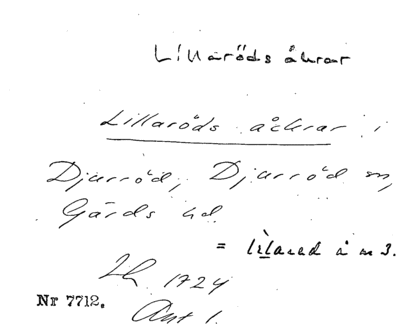 Lillaröds åkrar
Lillaröds åckrar i
Djurröd, Djurröd sn,
Gärds hd.
= lìlared å m 3.
Lh. 1724
Nr 7712.
Ant 1.